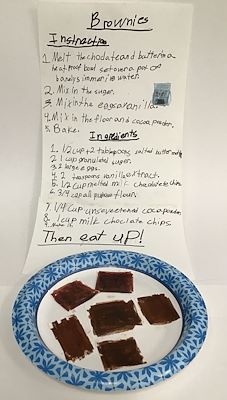 Brownies
Instruction
1. Melt the chodate and butter in a
heat proof bowl set over a pot of
barely simmering water.
2. Mix in the sugar.
3. Mix in the eggs a vanilla.
4. Mix in the floor and cocoa powder.
5. Bake.
Ingredients
1. 1/2 cup + 2 tablespoons salted butter
2. 1 cup granulated sugar.
3. 2 large eggs.
4. 2 teaspoons vanilla extract.
5. 1/2 cup melted milk chocolate chips
6. 3/4 cup all purpose flour.
7. 1/4 cup unsweetened cocoa powder
8. 1 cup milk choclate chips
Then eat up!